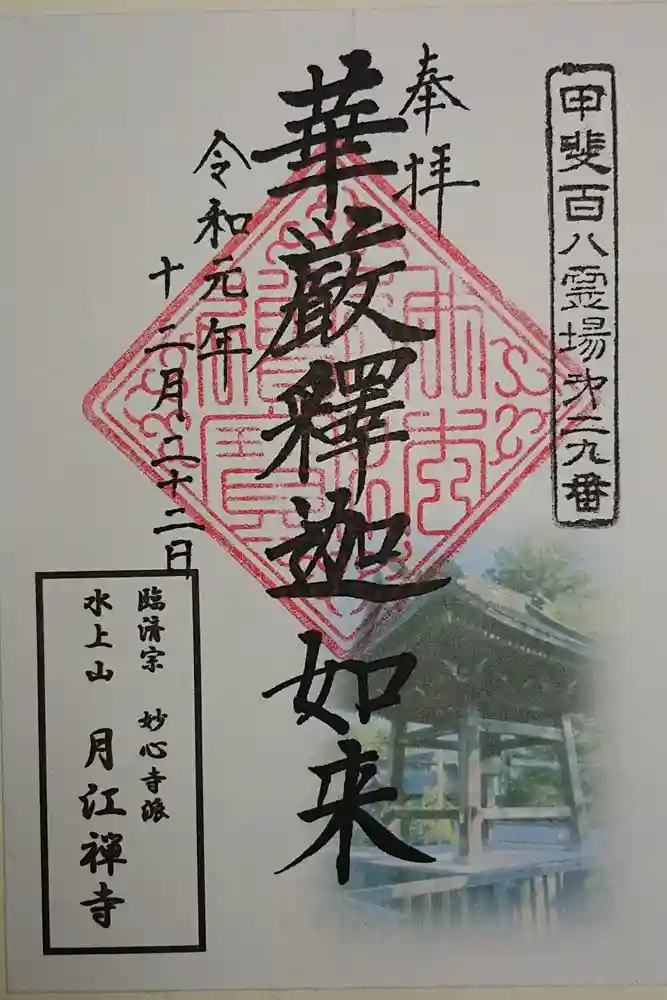 甲斐百八霊場第二九番
奉拝
華厳釋迦如来
令和元年
十二月二十二日
臨済宗 妙心寺派
水上山 月江禅寺